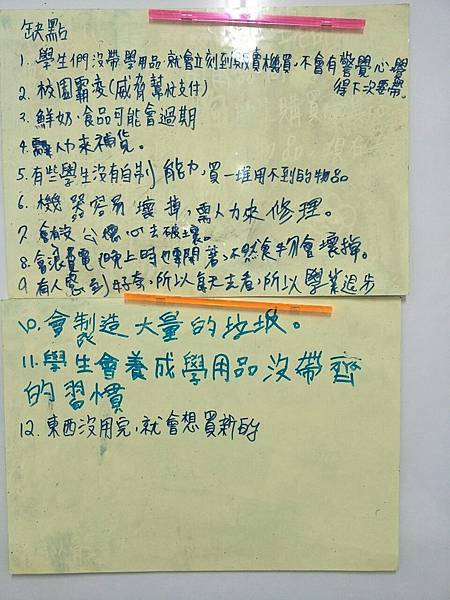 缺點
1. 學生們沒帶學用品,就會立刻到販賣機買,不會有警覺心,覺
得下次要帶。
2. 校園霸凌(威脅幫忙支付)
3. 鮮奶、食品可能會過期
4. 需人力來補貨。
5. 有些學生沒有自制能力,買一堆用不到的物品
6. 機器容易壞掉,需人力來修理。
7. 會有公德心去破壞。
8. 會浪費電,晚上時也要開著,不然食物會壞掉。
9. 有人感到好奇,所以每天去看,所以學業退步
10. 會製造大量的垃圾。
11. 學生會養成學用品沒帶齊
的習慣
12. 東西沒用完,就會想買新的